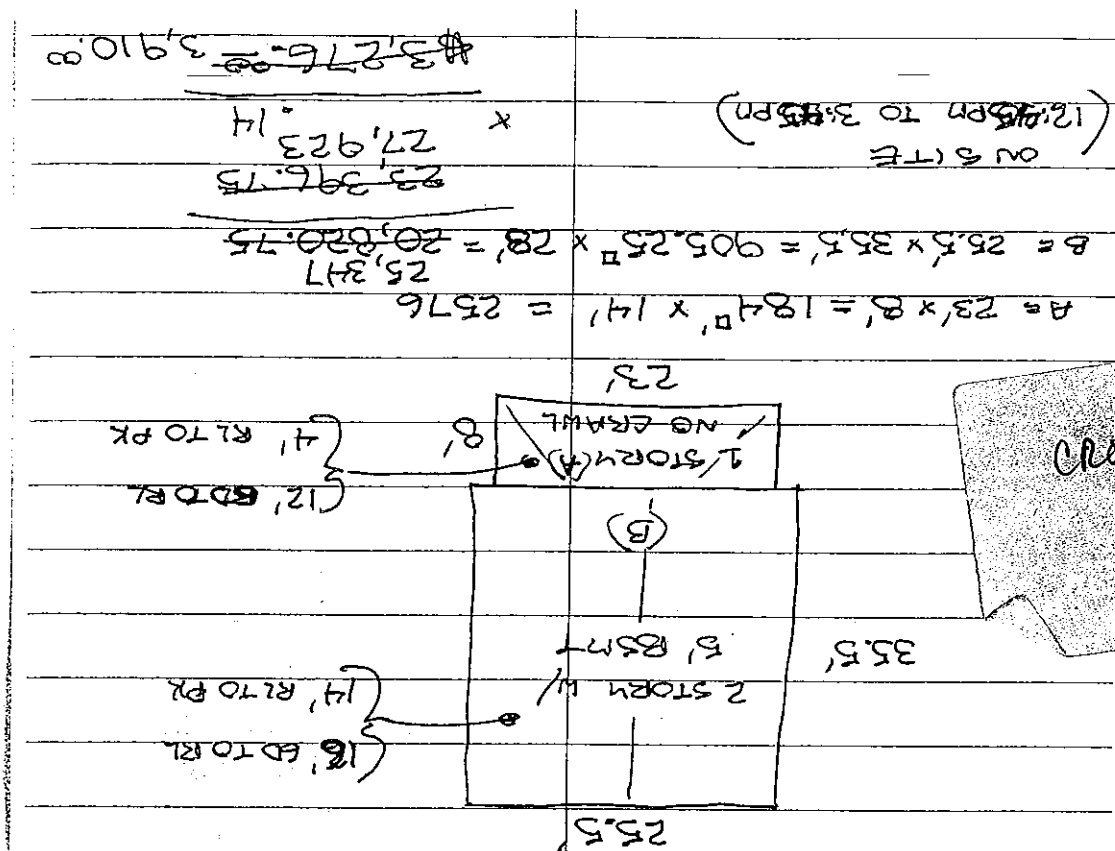 25.5'
16' GD TO RL
14' RL TO PK
2 STORY W/
5' BSMT
35.5'
(B)
12' GD TO RL
4' RL TO PK
1 STORY (A)
NO CRAWL
8'
23'
A= 23' x 8' = 184□' x 14' = 2576
25,347
B= 25.5' x 35.5' = 905.25□ x 28' = 20,820.75
23,396.75
27,923
x .14
$3,276.00 = 3,910.00
ON SITE
(12:45PM TO 3:45PM)